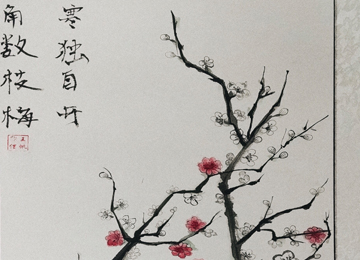 角数枝梅
寒独自开